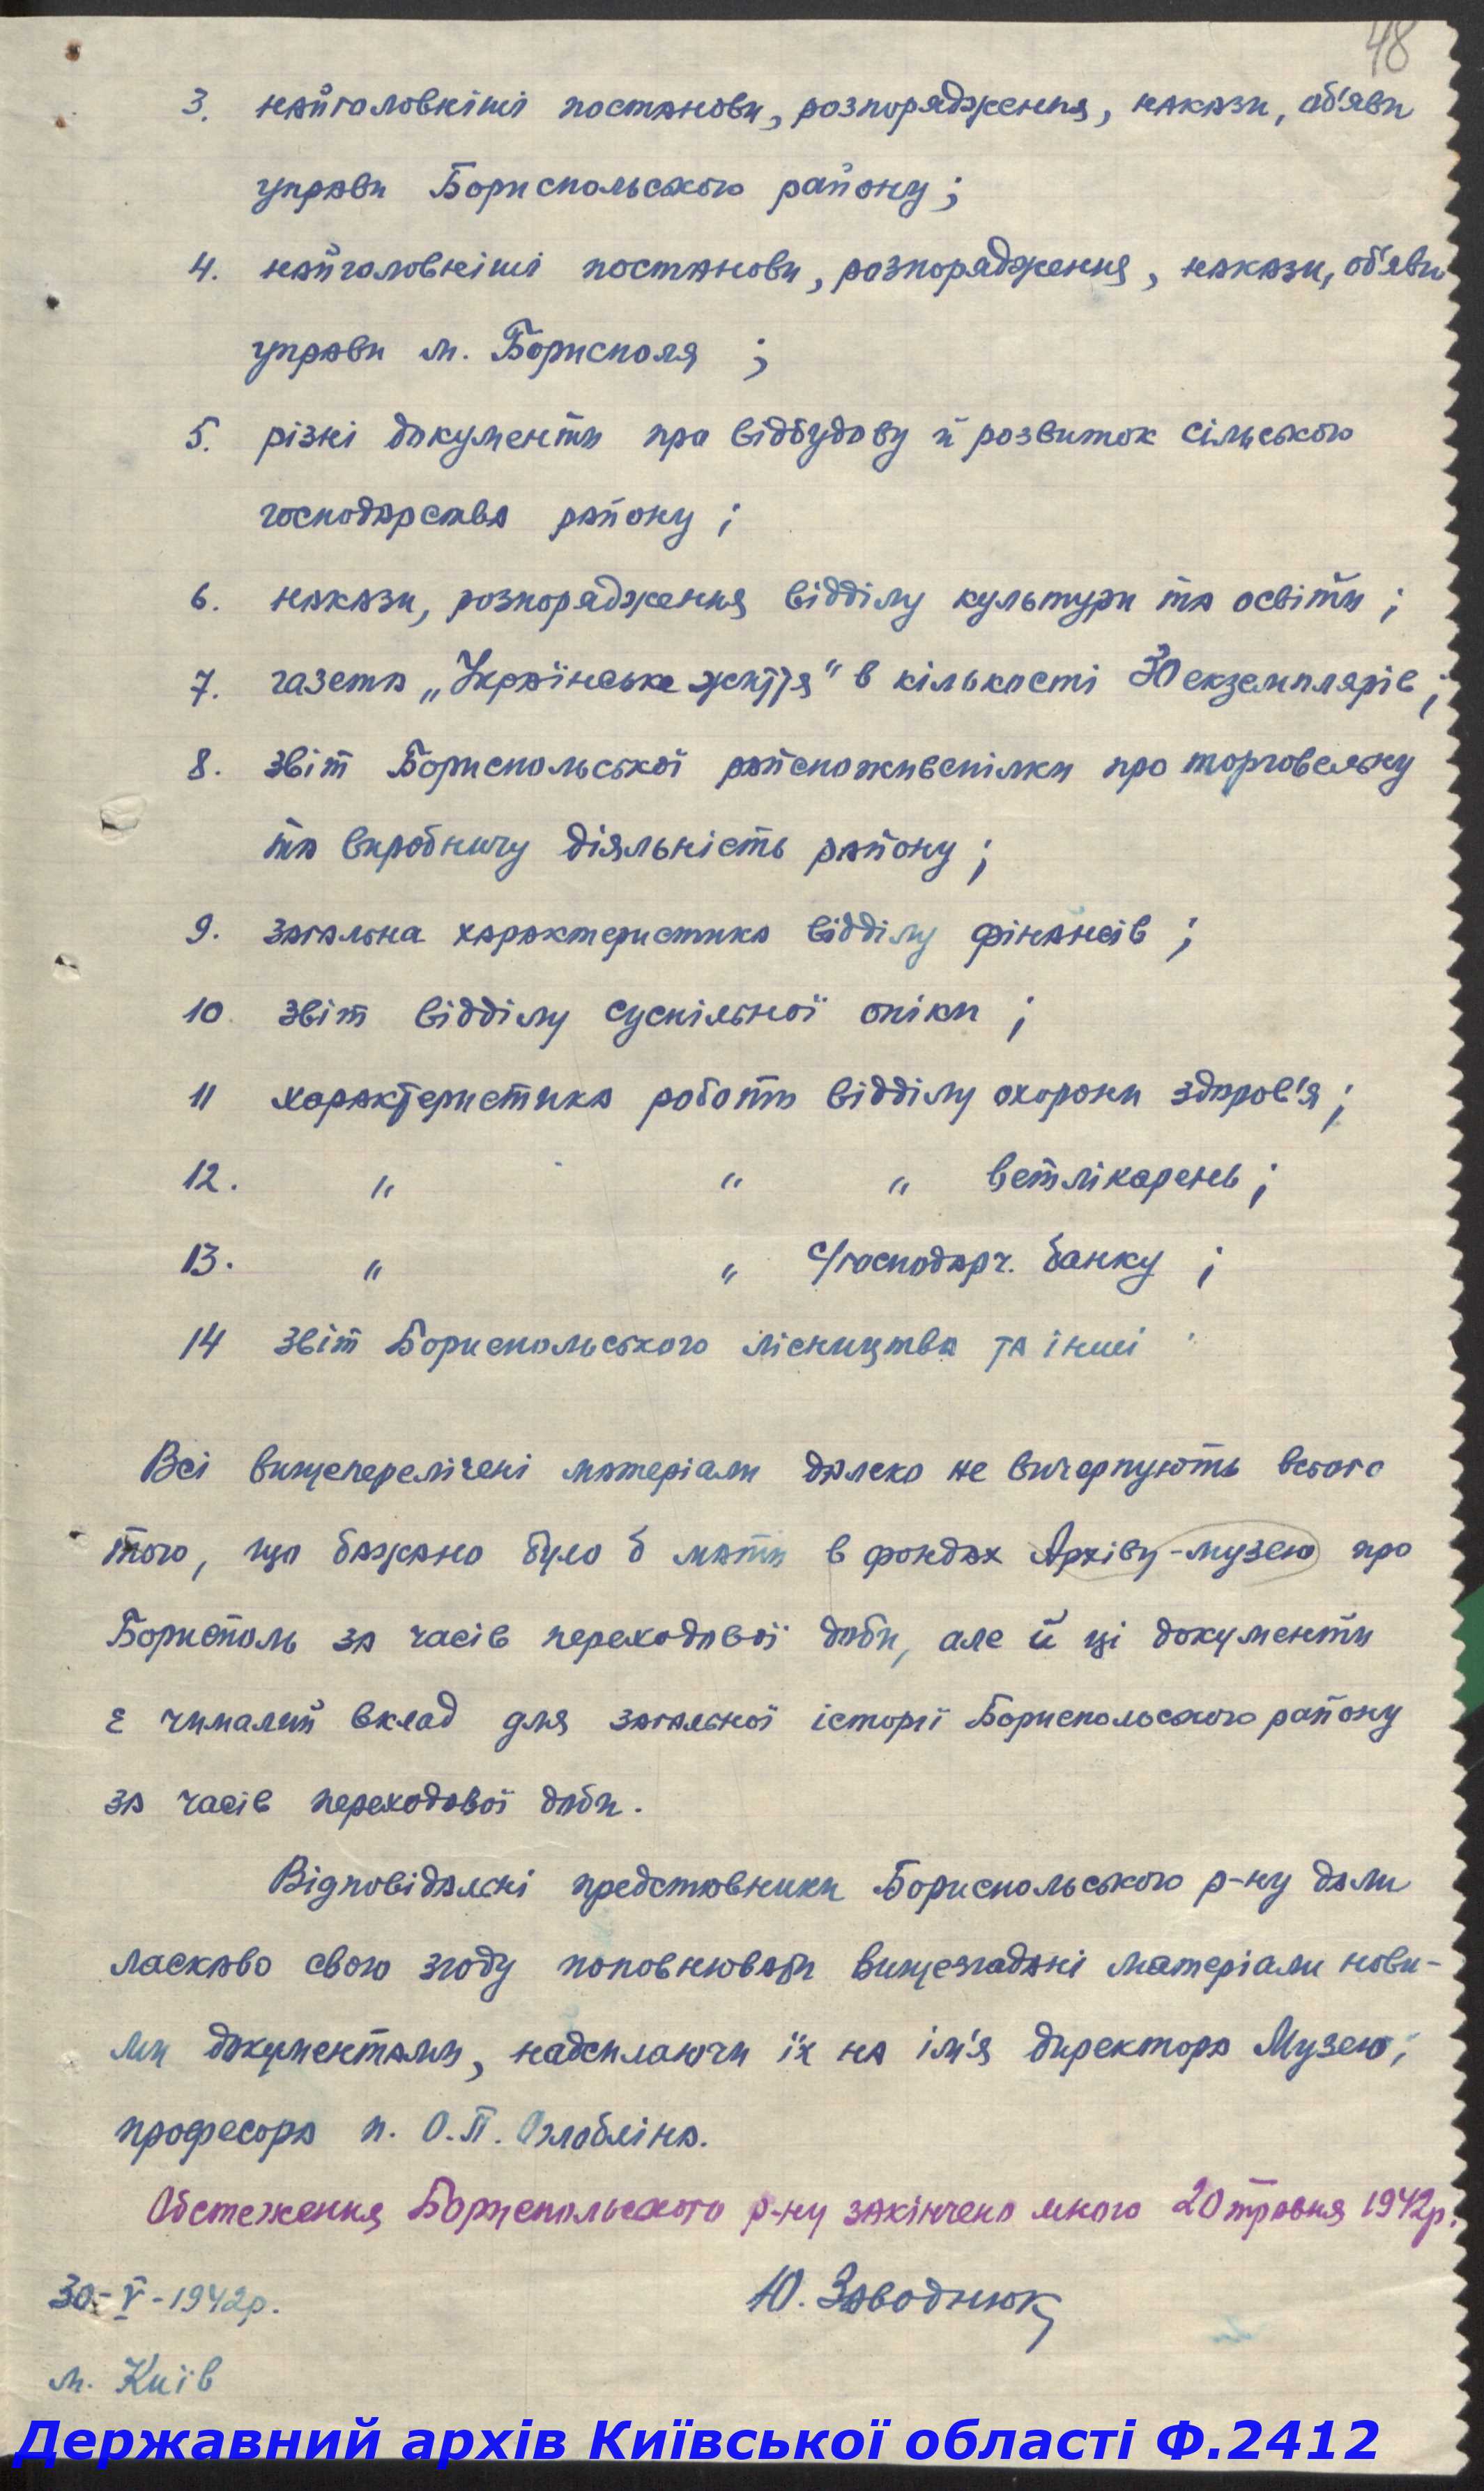 48
3. найголовніші постанови, розпорядження, накази, об'яви
управи Бориспольського району;
4. найголовніші постанови, розпорядження, накази, об'яви
управи м. Борисполя ;
5. різні документи про відбудову й розвиток сільського
господарства району ;
6. накази, розпорядження відділу культури та освіти ;
7. газета „Українське життя" в кількості 30 екземплярів ;
8. звіт Бориспольської райспоживспілки про торговельну
та виробничу діяльність району ;
9. загальна характеристика відділу фінансів ;
10 звіт відділу суспільної опіки ;
11 характеристика роботи відділу охорони здоров'я ;
12. " " " ветлікарень ;
13. " " с/господарч. банку ;
14 звіт Бориспольського лісництва та інші
Всі вищеперелічені матеріали далеко не вичерпують всього
того, що бажано було б мати в фондах Архіву-музею про
Бориспіль за часів переходової доби, але й ці документи
є чималий вклад для загальної історії Бориспольського району
за часів переходової доби.
Відповідальні представники Бориспольського р-ну дали
ласкаво свою згоду поповнювати вищезгадані матеріали нови-
ми документами, надсилаючи їх на ім'я директора Музею,
професора п. О.П. Оглобліна.
Обстеження Бориспольського р-ну закінчено мною 20 травня 1942р.
30-V-1942р.
Ю. Заводнюк
м. Київ
Державний архів Київської області Ф.2412